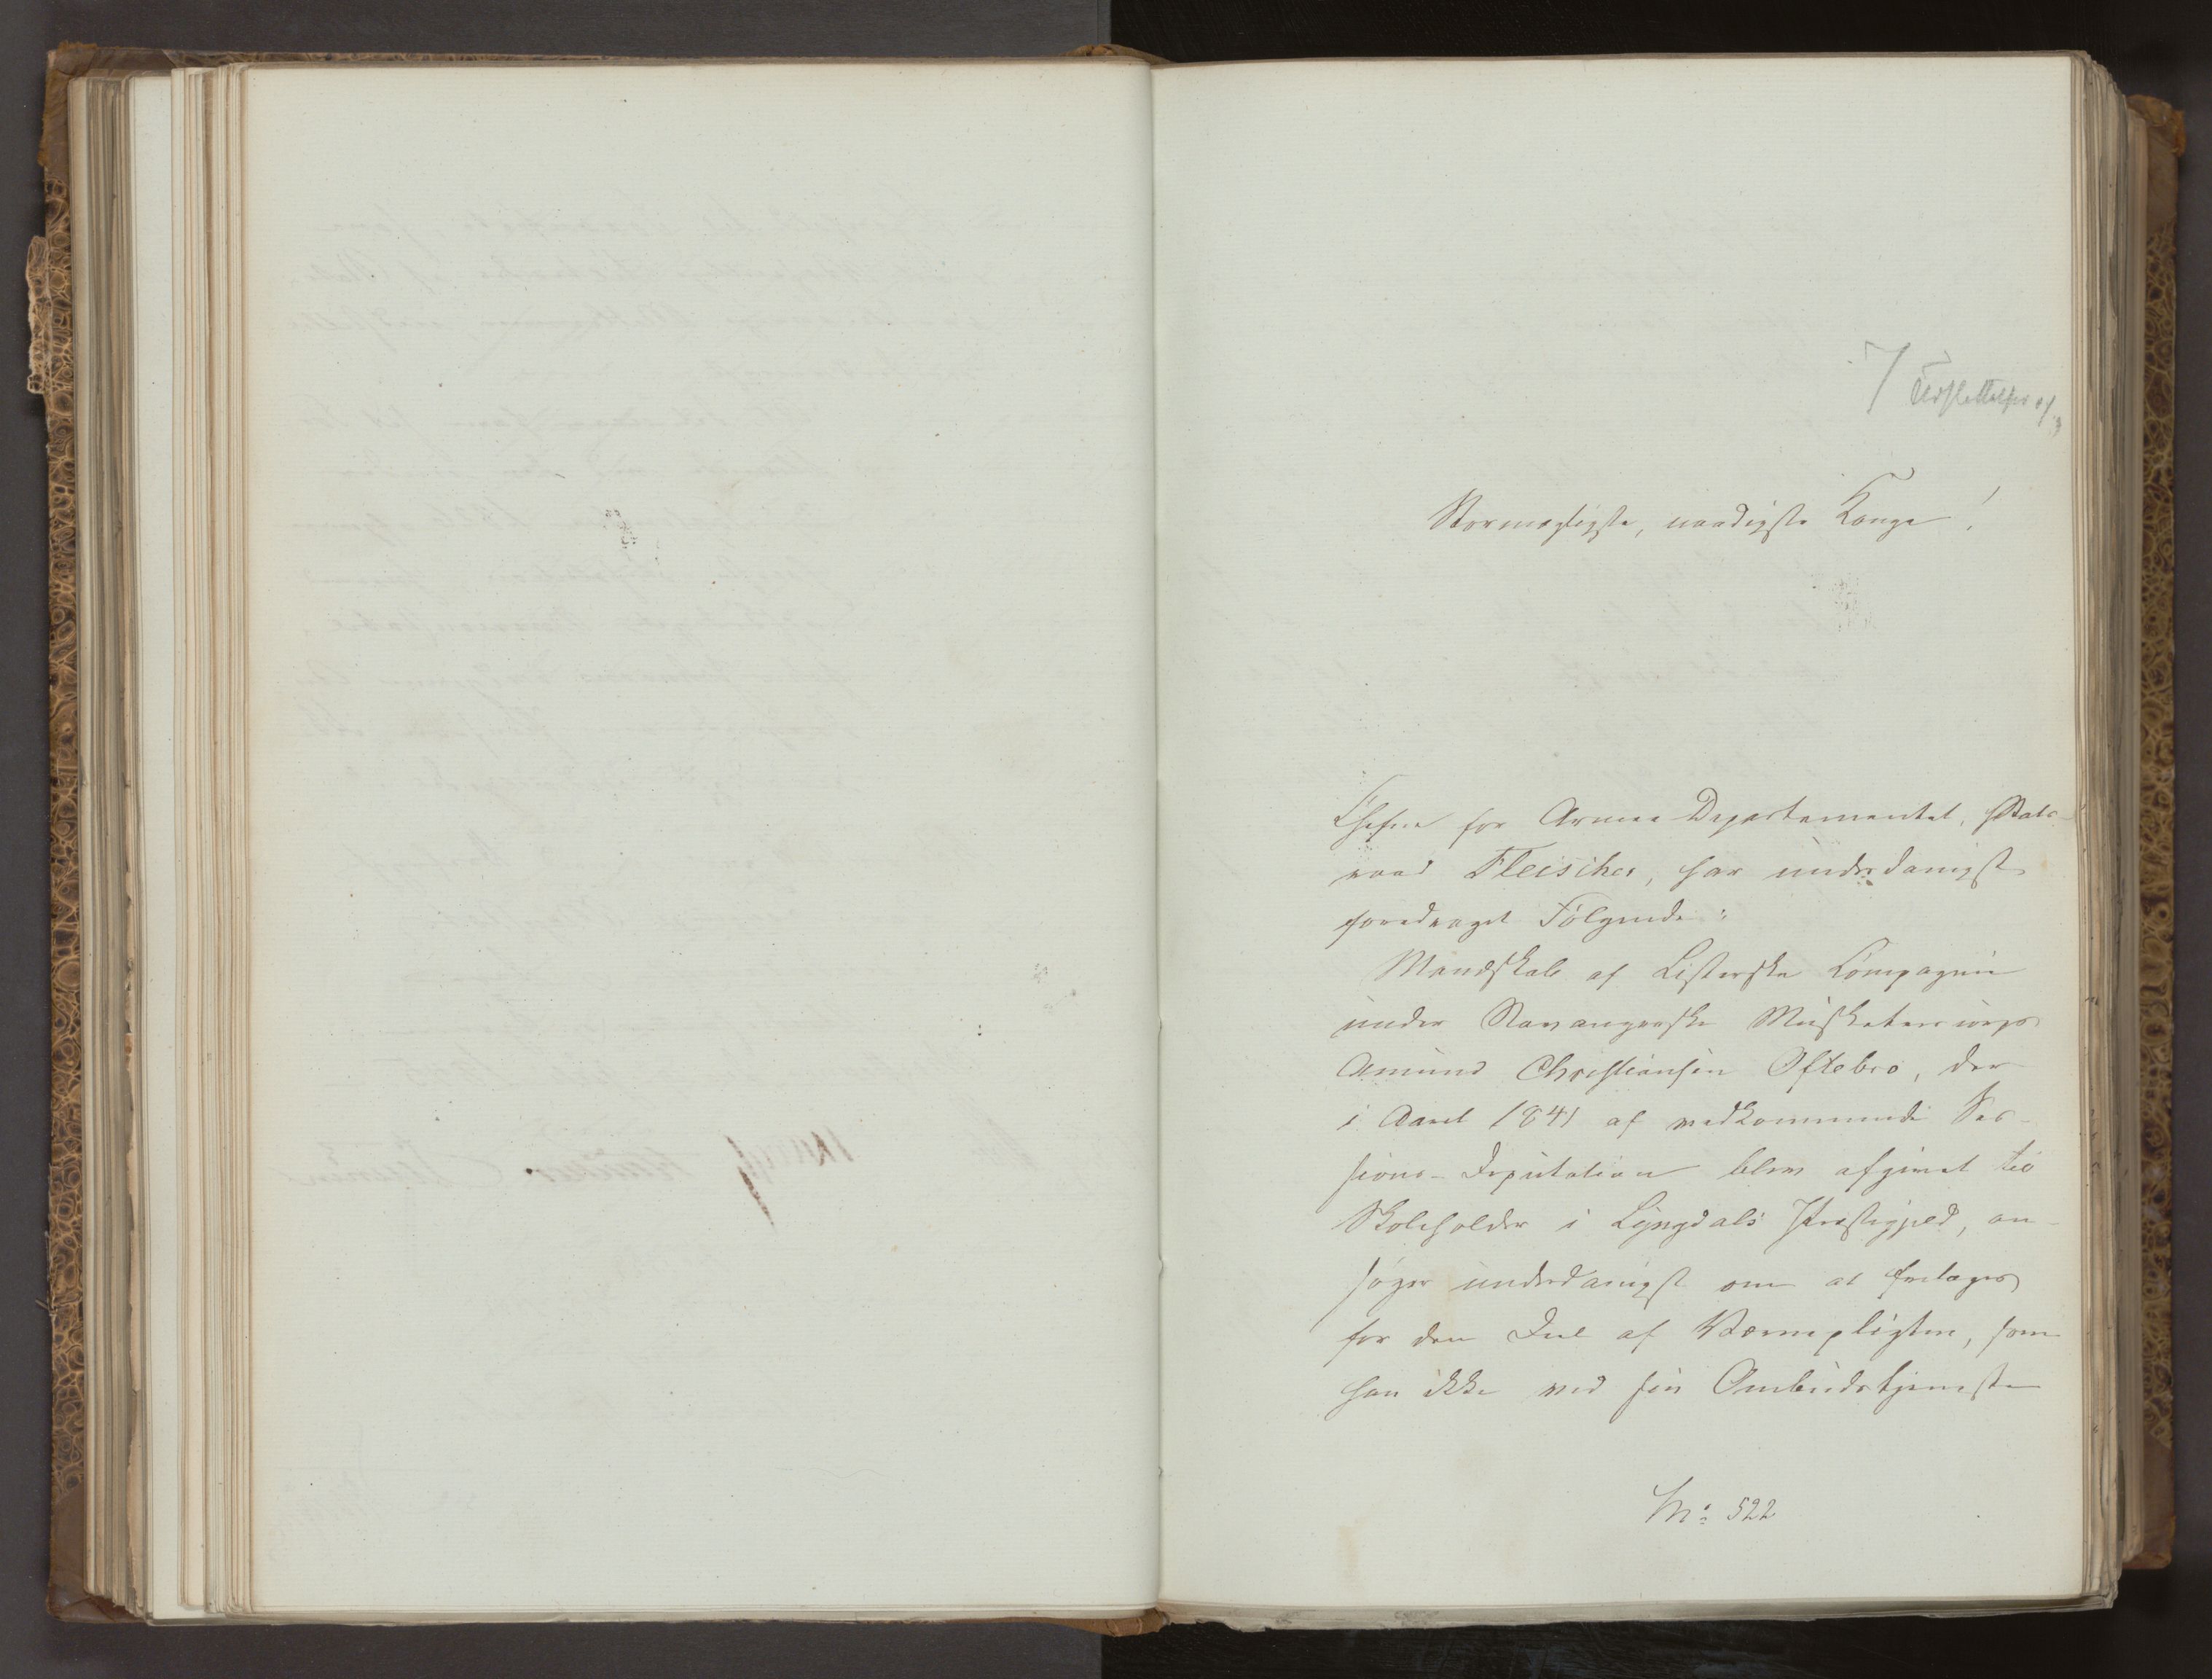 7
Stormægtigste, naadigste Konge!
Chefen for Armee Departementet, Stats-
raad Fleischer, har underdanigst
foredraget Følgende:
Mandskab af Listerske Compagnie
under Stavangerske Musketeercorps
Amund Christiansen Oftebro, der
i Aaret 1841 af vedkommende Ses-
sions-Deputation blev afgivet til
Skoleholder i Lyngdals Præstegjeld, an-
søger underdanigst om at fritages
for den Deel af Værnepligten, som
han ikke ved sin Ombudstjeneste
No: 522